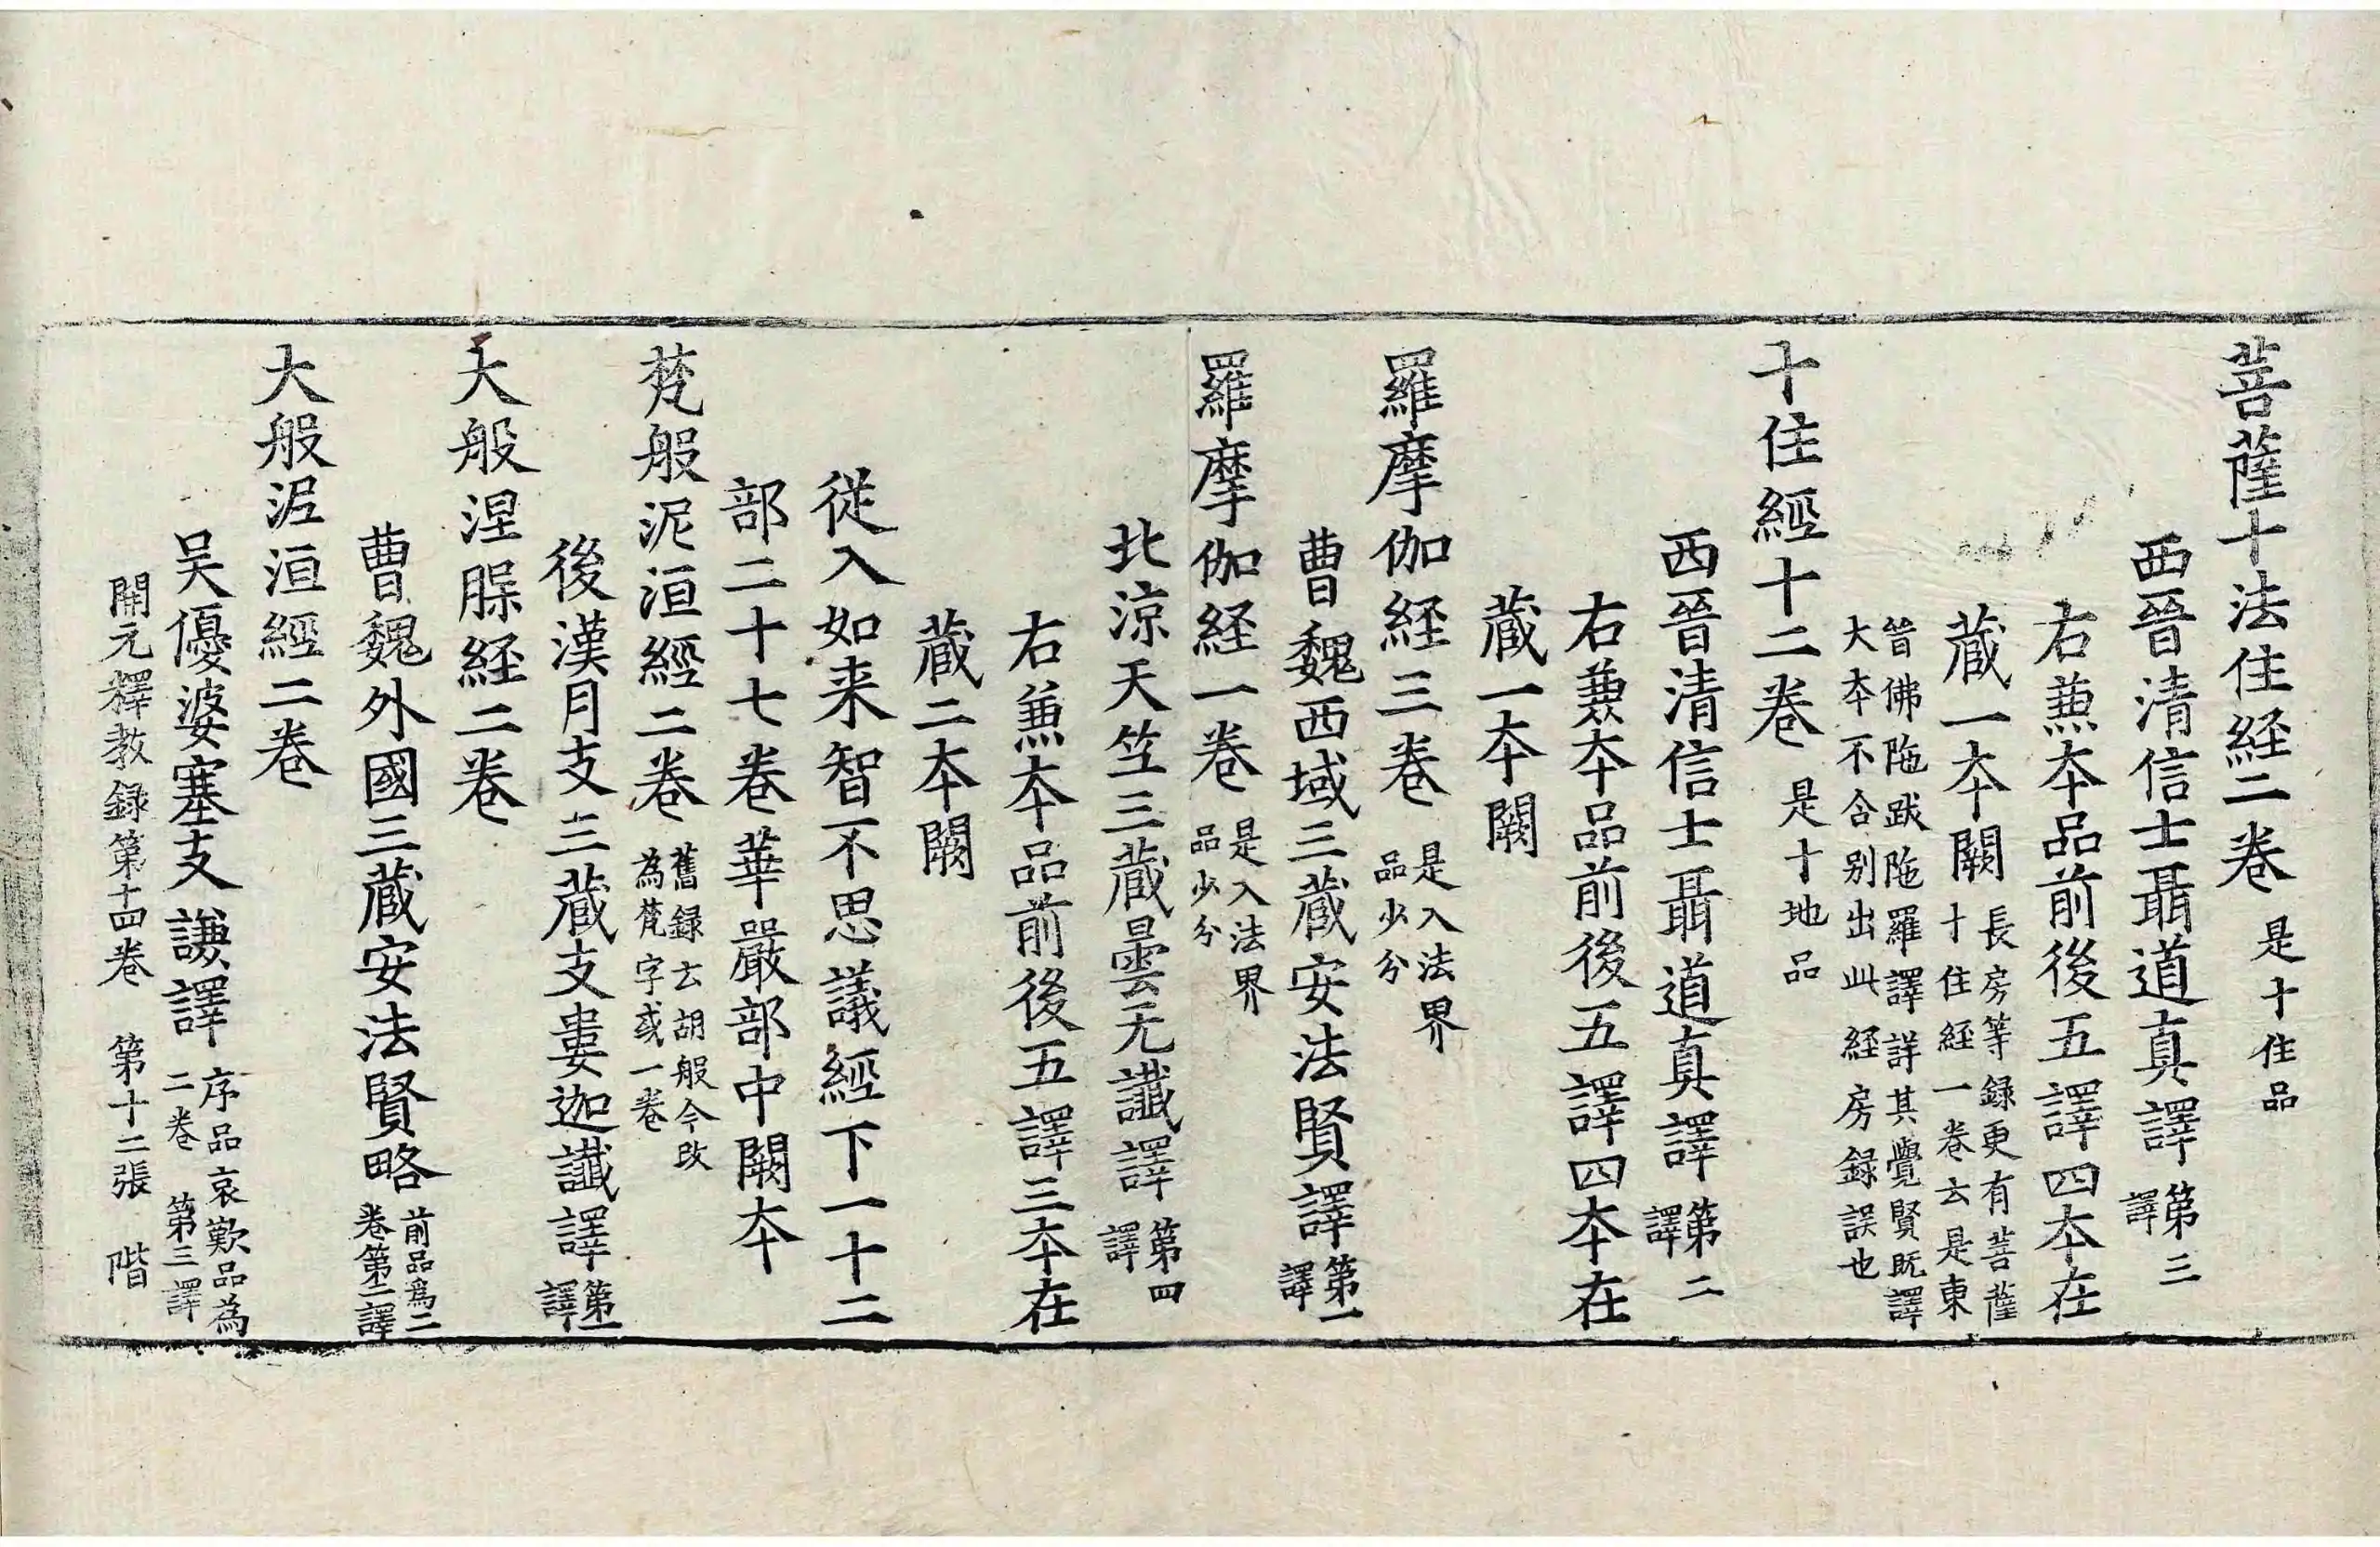 菩薩十法住経二卷 是十住品
西晉清信士聶道真譯 第三譯
右蕪本品前後五譯四本在
藏一本闕 長房等録更有菩薩十住経一卷云是東
晉佛陁跋陁羅譯詳其覺賢既譯大本不合别出此経房録誤也
十住經十二卷 是十地品
西晉清信士聶道真譯 第二譯
右蕪本品前後五譯四本在
藏一本闕
羅摩伽経三卷 是入法界品少分
曹魏西域三藏安法賢譯 第一譯
羅摩伽経一卷 是入法界品少分
北涼天竺三藏曇无讖譯 第四譯
右蕪本品前後五譯三本在
藏二本闕
従入如来智不思議經下一十二
部二十七卷華嚴部中闕本
梵般泥洹經二卷 舊録云胡般今改為梵字或一卷
後漢月支三藏支婁迦讖譯 第一譯
大般涅膎経二卷
曹魏外國三藏安法賢略 前品爲二卷第二譯
大般泥洹經二卷
吴優婆塞支謙譯 序品哀歎品為二卷 第三譯
開元釋教録第十四卷 第十二張 階